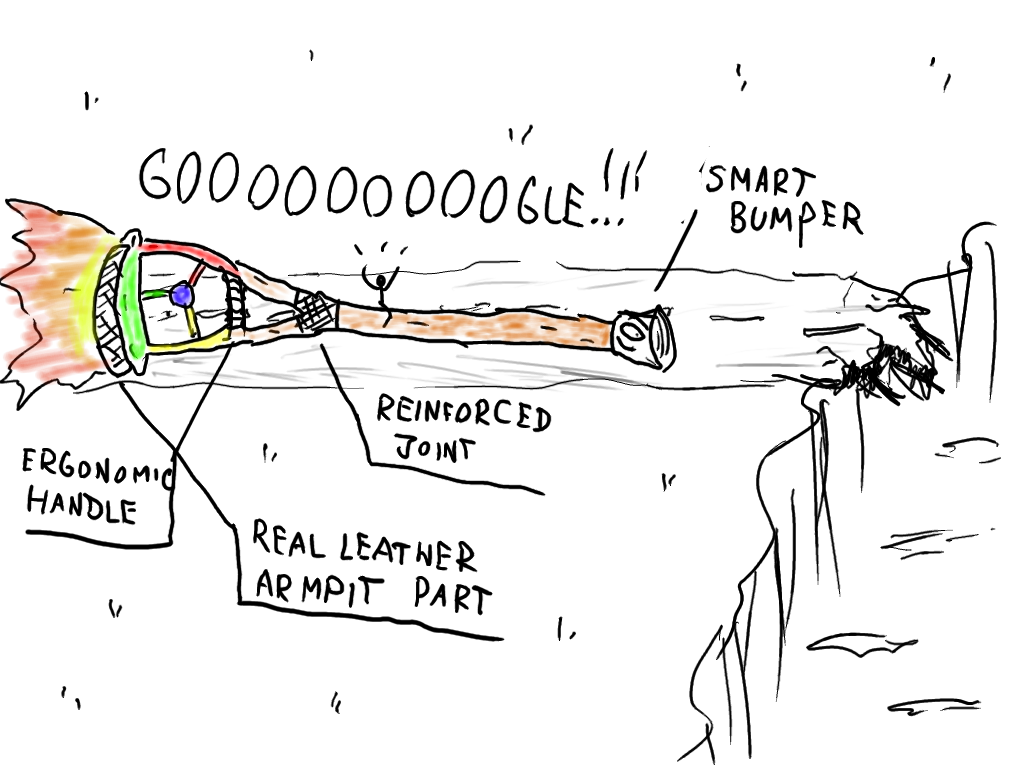 GOOOOOOOOOOGLE...!!!
SMART
BUMPER
REINFORCED
JOINT
ERGONOMIC
HANDLE
REAL LEATHER
ARMPIT PART